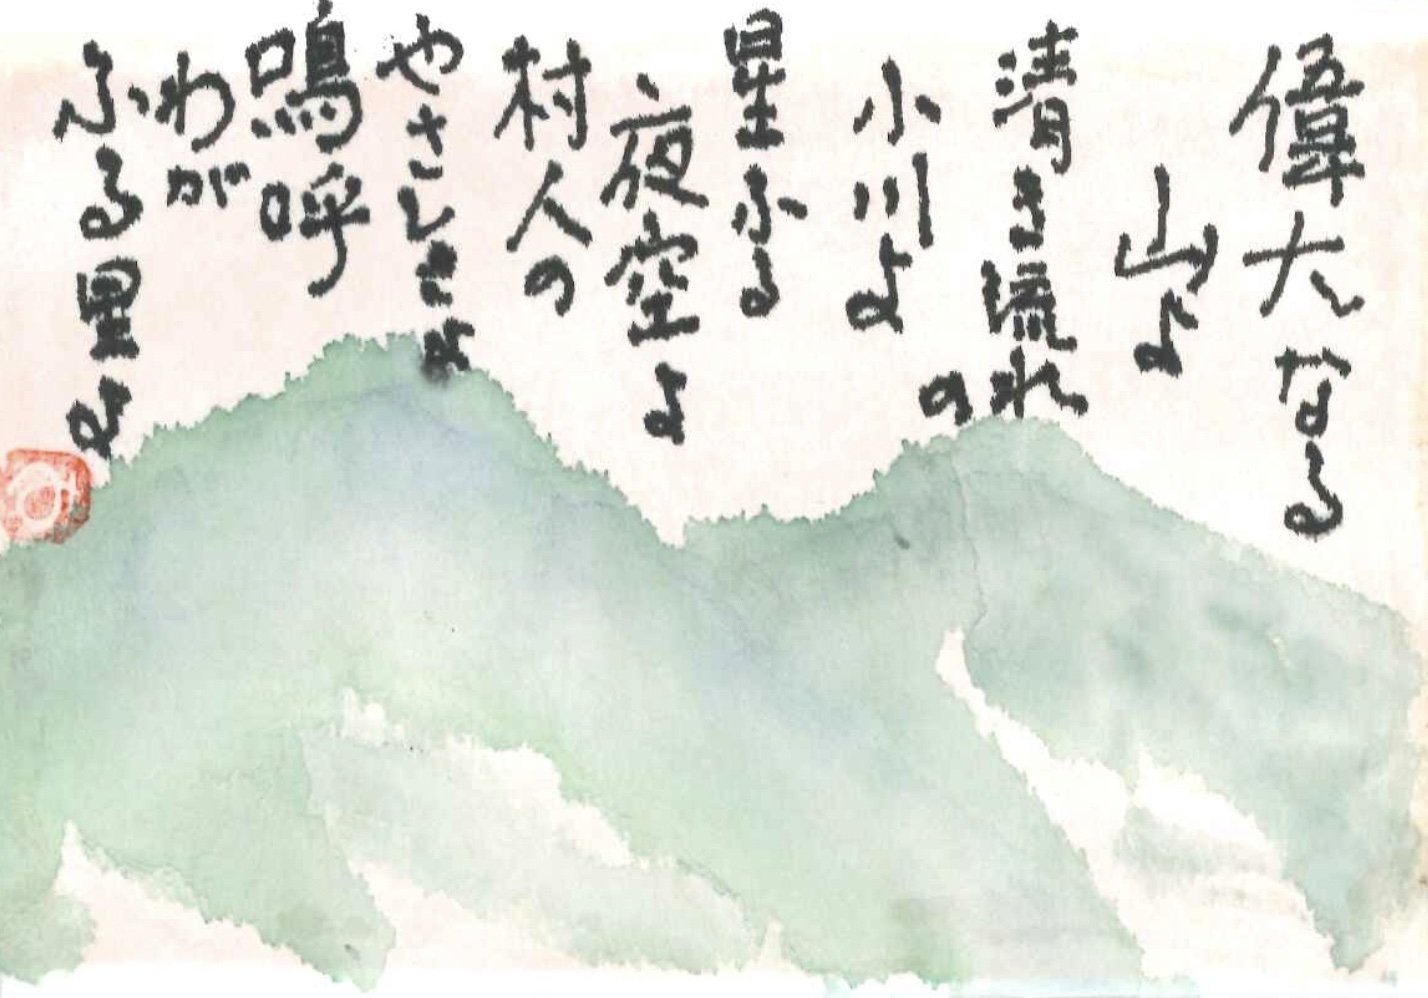 偉大なる
山よ
清き流れの
小川よ
星ふる
夜空よ
村人の
やさしさよ
嗚呼
わが
ふる里よ